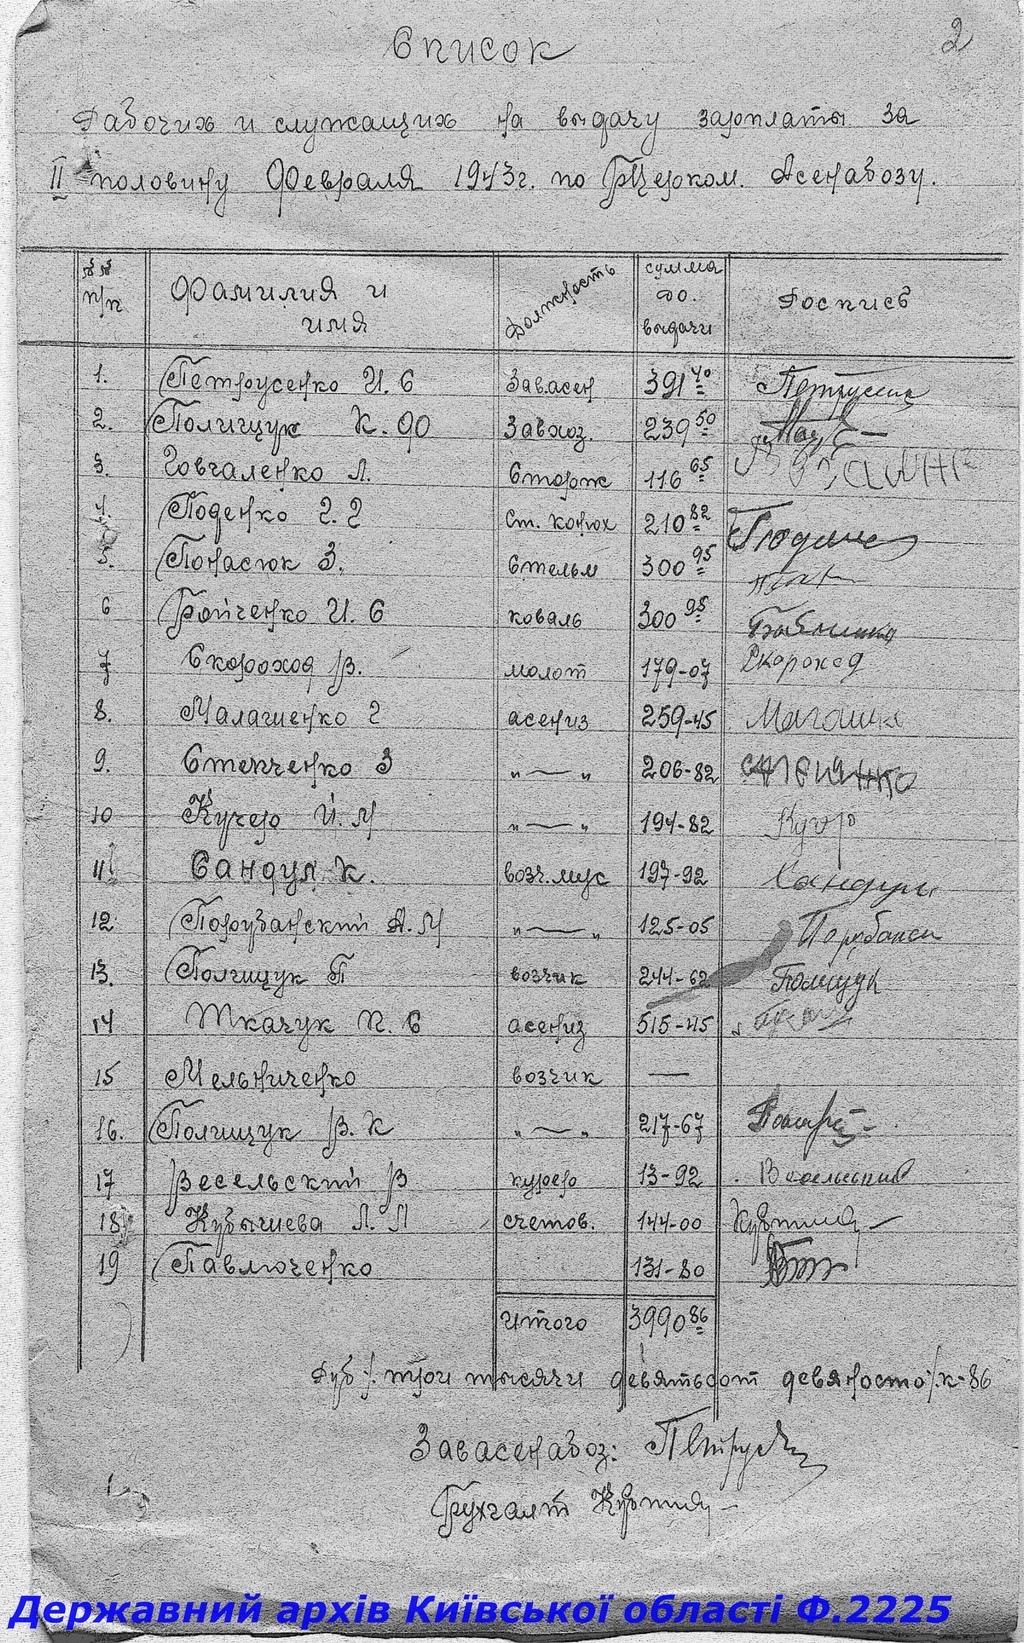 2
Список
Рабочих и служащих на выдачу зарплаты за
II половину Февраля 1943г. по Бцерком. Асенавозу.
№№ п/п Фамилия и имя Должность сумма до. выдачи Роспись
1. Петрусенко И. С Завасен 391 40 Петрусенк
2. Полищук К. Ф Завхоз. 239 50
3. Говгаленко Л. Сторож 116 65
4. Поденко Г. Г Ст. конюх 210 82
5. Понасюк З. Стельм 300 95
6 Бойченко И. С коваль 300 95
7 Скороход В. молот 179-07 Скороход
8. Малашенко Г асениз 259-45
9. Степченко З „—„ 206-82
10 Кучер И. М „—„ 194-82 Кучер
11 Сандул К. возч.мус 197-92
12 Порубанский А. М „—„ 125-05
13. Полищук П возчик 244-62 Полищук
14 Ткачук П. С асениз 515-45
15 Мельниченко возчик —
16. Полищук В. К „—„ 217-67
17 Весельский В курер 13-92 Весельский
18 Кубышева Л. П счетов. 144-00
19 Павлюченко 131-80
Итого 3990 86
Руб /. три тысячи девятьсот девяносто/.к-86
Завасенавоз:
Бухгалт
Державний архів Київської області Ф.2225